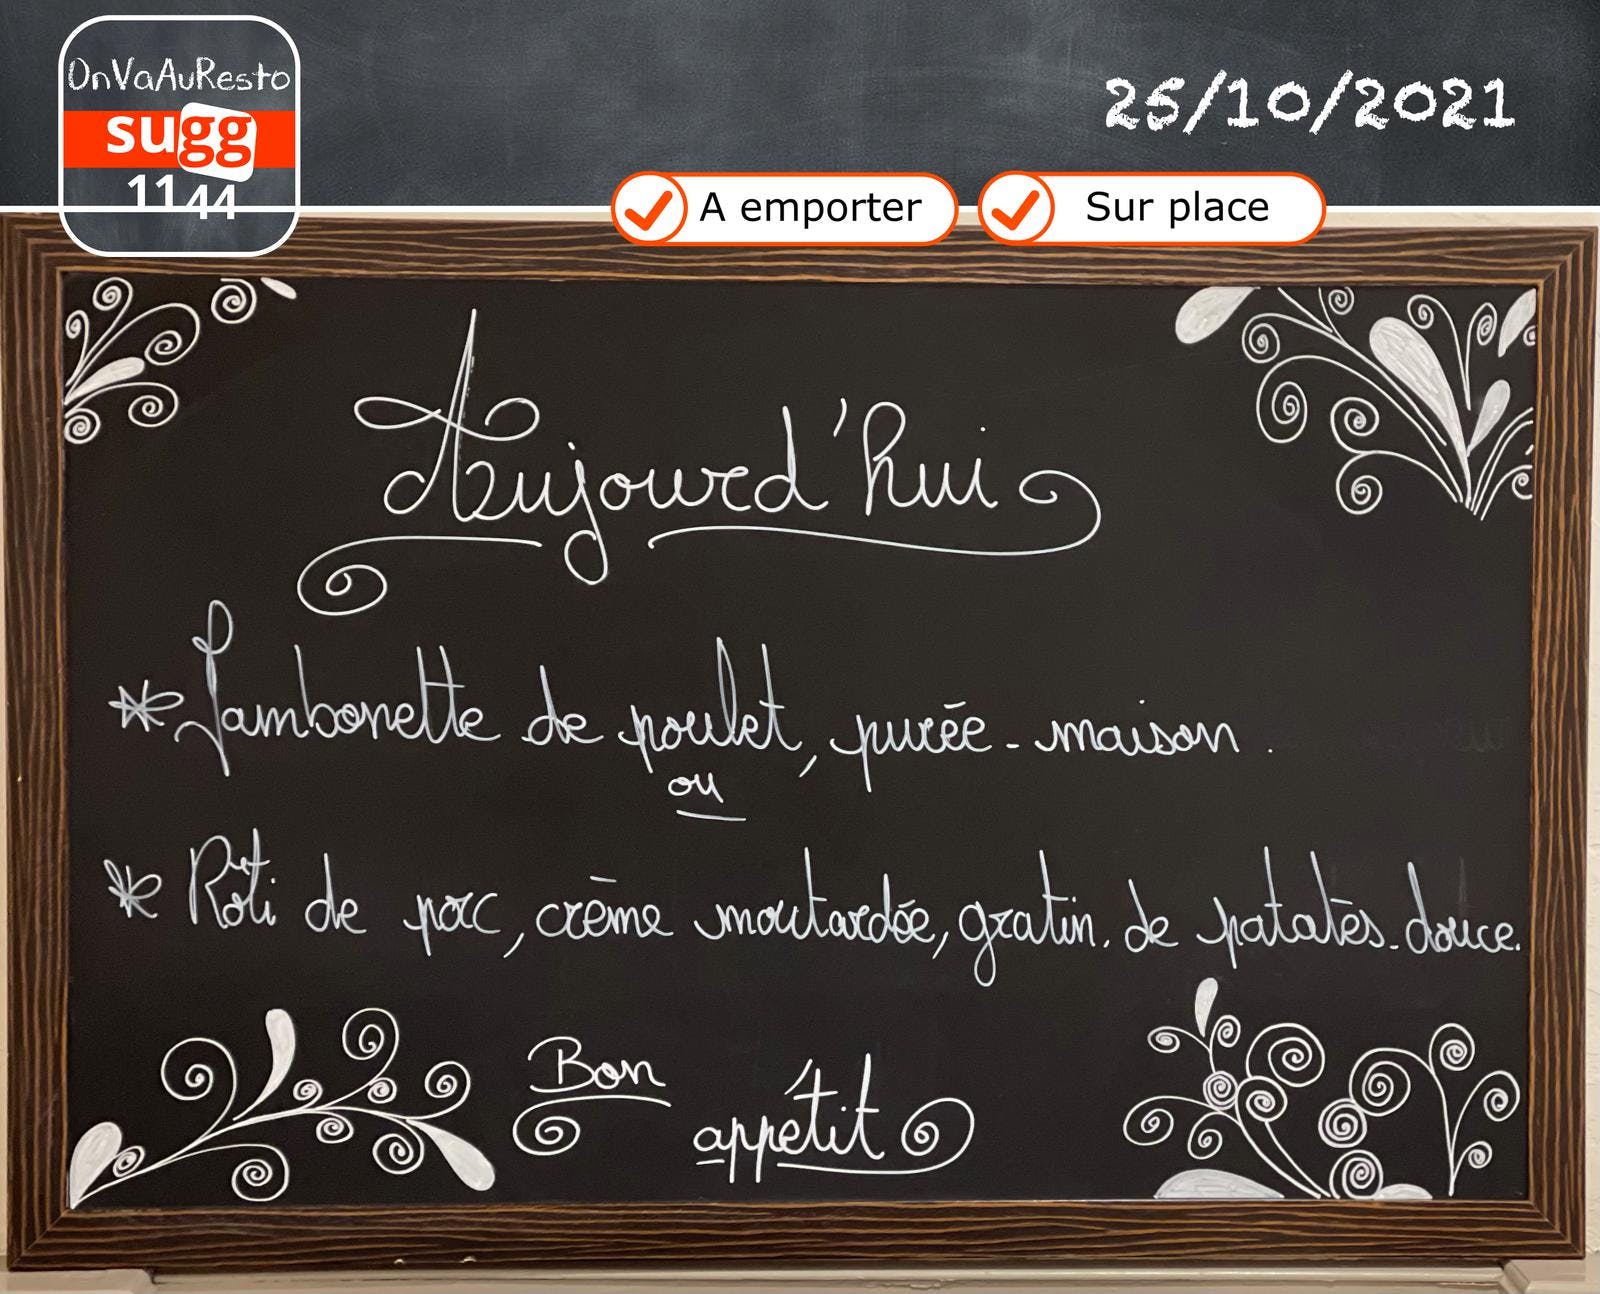 OnVaAuResto
sugg
1144
25/10/2021
A emporter
Sur place
Aujourd'hui
* Jambonette de poulet, purée-maison.
ou
* Rôti de porc, crème moutardée, gratin de patates-douce.
Bon
appétit